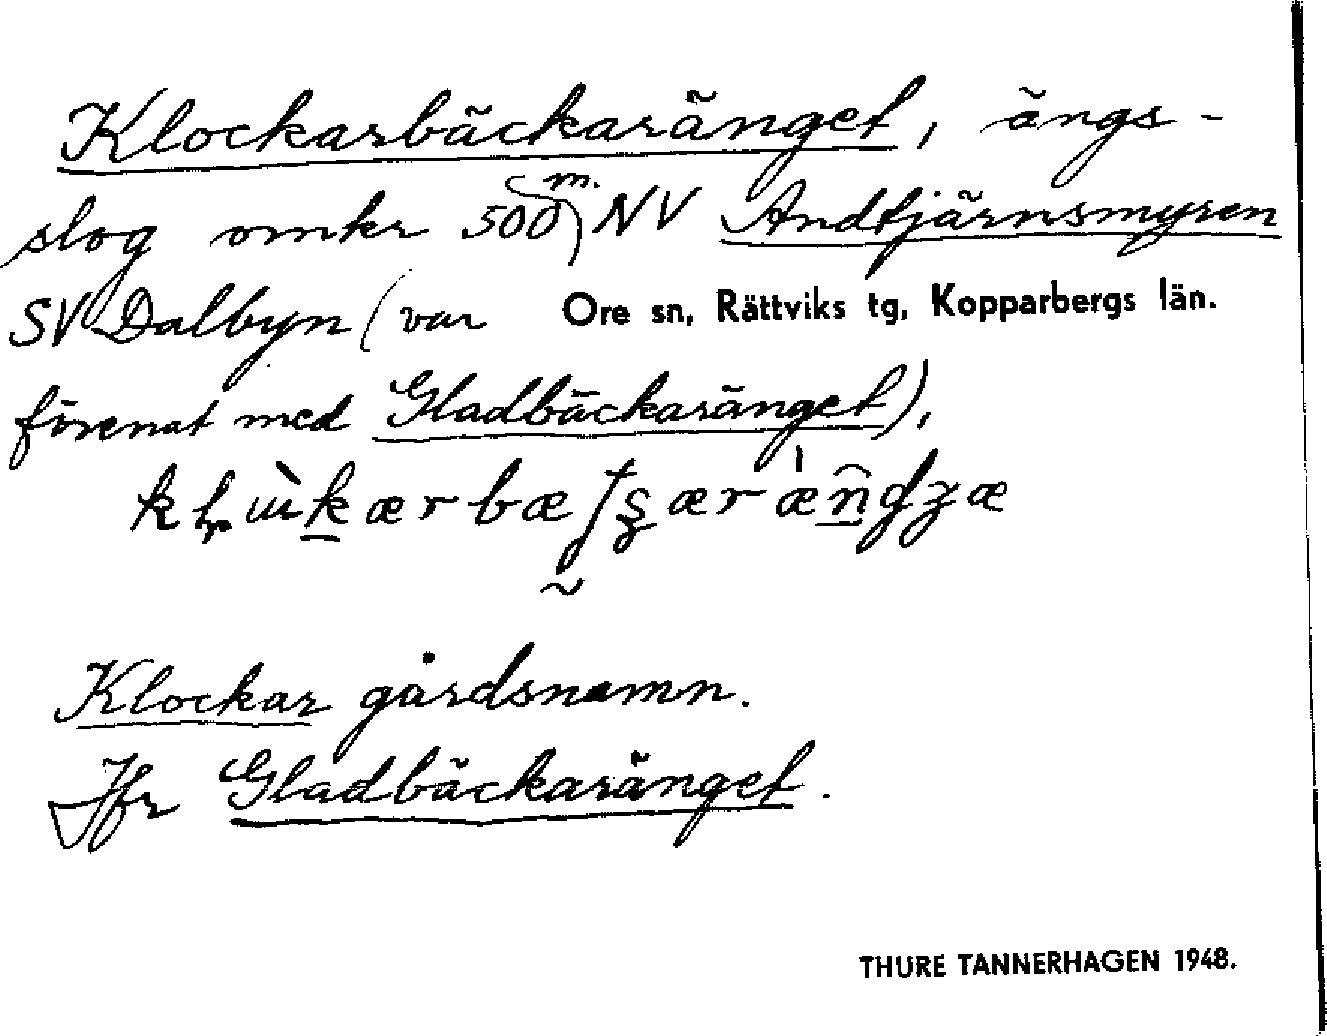 Klockarbäckaränget, ängs-
slog omkr 500 m. NV Andtjärnsmyren
SV Dalbyn (var Ore sn, Rättviks tg, Kopparbergs län.
förenat med Gladbäckaränget),
Klockar gårdsnamn.
Jfr Gladbäckaränget.
THURE TANNERHAGEN 1948.